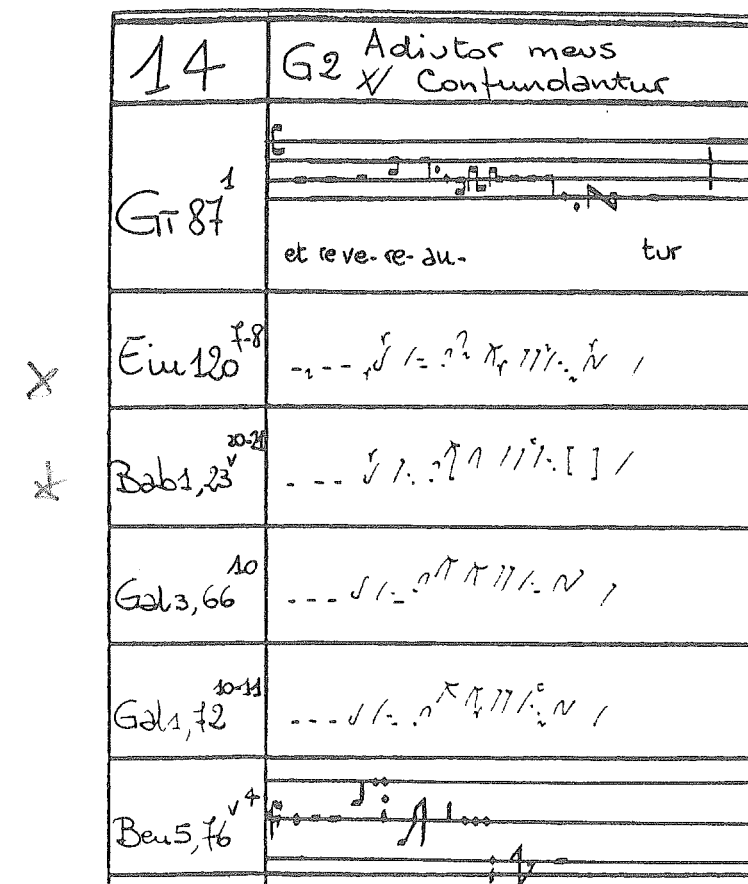 14
G2 Adiutor meus
℣ Confundantur
GTT 87 1
et re ve- re- au- tur
Ein 120 7-8
Bab1, 23v 20-21
Gal3, 66 10
Gal1, 72 10-11
Ben5, 76v 4